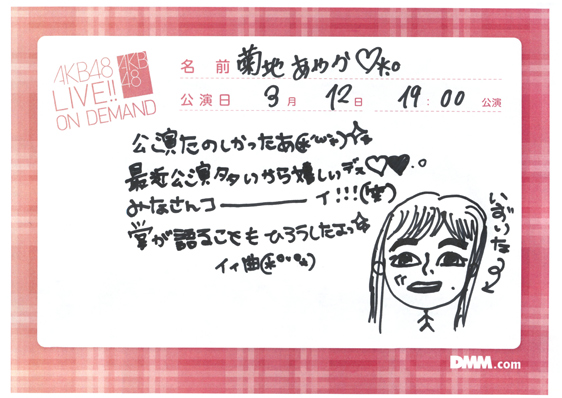 AKB48
LIVE!!
ON DEMAND
AKB
48
名 前 菊地あやか♡
公演日 3月 12日 19:00 公演
公演たのしかったあ
最近公演多いから嬉しいデス♡♥。
みなさんコ―――イ!!!
掌が語ることもひろうしたよっ☆
イイ曲
いずりな
DMM.com